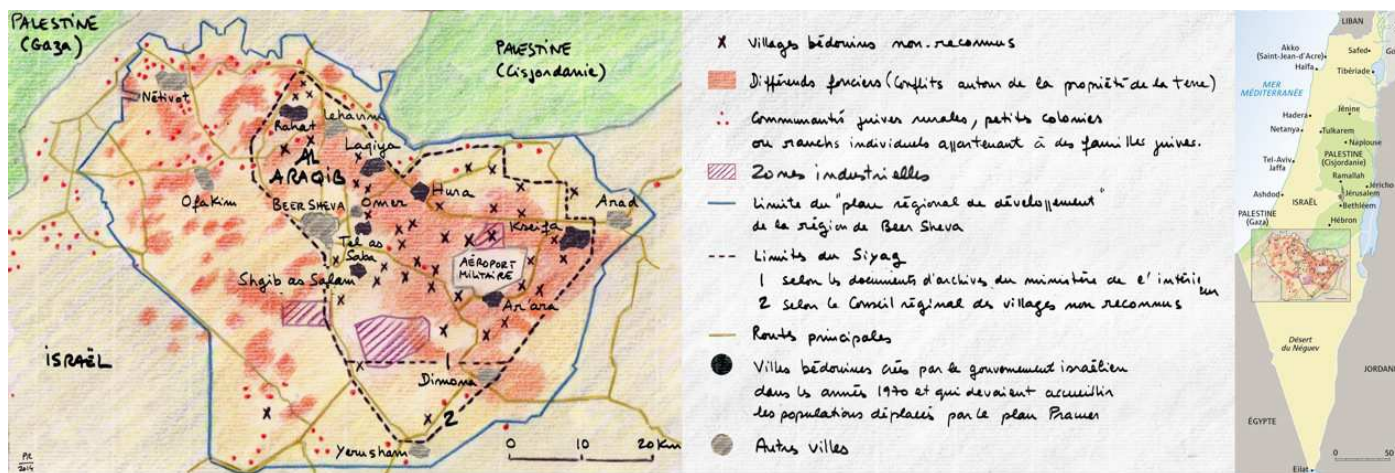 PALESTINE
(Gaza)
PALESTINE
(Cisjordanie)
Nétivot
Rahat
Lehavim
Laqiya
AL
ARAQIB
Ofakim
BEER SHEVA
Omer
Hura
Arad
Kseifa
Tel as
Saba
AÉROPORT
MILITAIRE
Shgib as Salam
Ar'ara
ISRAËL
1
Dimona
2
Yerusham
0 10 20 Km
PR
2014
Villages bédouins non-reconnus
Différends fonciers (Conflits autour de la propriété de la terre)
Communauté juives rurales, petits colonies
ou ranchs individuels appartenant à des familles juives.
Zones industrielles
Limite du "plan régional de développement"
de la région de Beer Sheva
Limites du Siyag
1 selon les documents d'archives du ministère de l'intérieur
2 selon le Conseil régional des villages non reconnus
Routes principales
Villes bédouines crées par le gouvernement israélien
dans les années 1970 et qui devaient accueillir
les populations déplacés par le plan Prawer
Autres villes
LIBAN
Akko
(Saint-Jean-d'Acre)
Safed
Go
Haïfa
Tibériade
MER
MÉDITERRANÉE
Hadera
Jénine
Netanya
Tulkarem
Naplouse
Tel-Aviv
Jaffa
PALESTINE
(Cisjordanie)
Ramallah
Jéricho
Ashdod
ISRAËL
Jérusalem
Bethléem
PALESTINE
(Gaza)
Hébron
Désert
du Néguev
JORDANIE
ÉGYPTE
Eilat
0 50